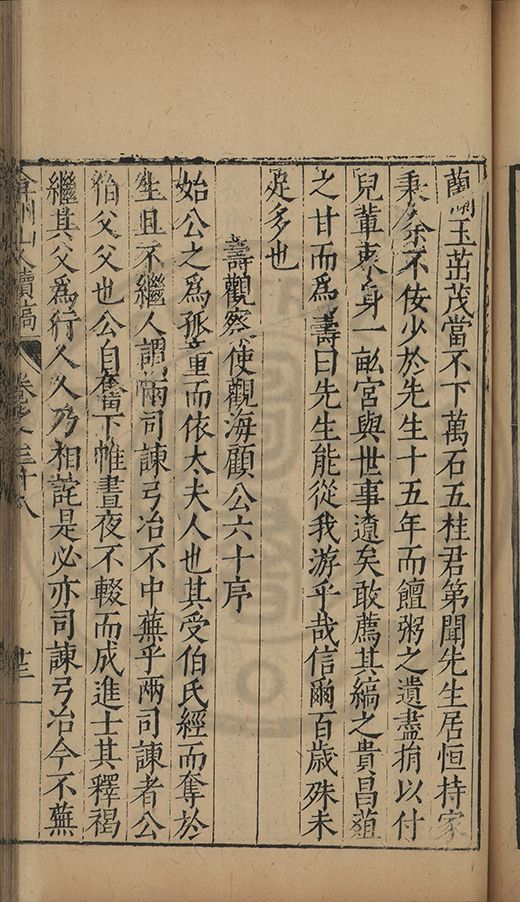 蘭玉茁茂當不下萬石五桂君第聞先生居恒持家
秉余不佞少於先生十五年而饘粥之遺盡捐以付
兒輩束身一畝宮與世事遼矣敢薦其縞之貴昌蒩
之甘而為壽曰先生能從我游乎哉信爾百歲殊未
足多也
壽觀察使觀海顧公六十序
始公之為孤童而依太夫人也其受伯氏經而奪於
生且不繼人謂兩司諫弓冶不中蕪乎兩司諫者公
伯父父也公自奮下帷晝夜不輟而成進士其釋褐
繼其父為行人久乃相詫是必亦司諫弓冶今不蕪
弇州山人續稿
卷之三十八
十三